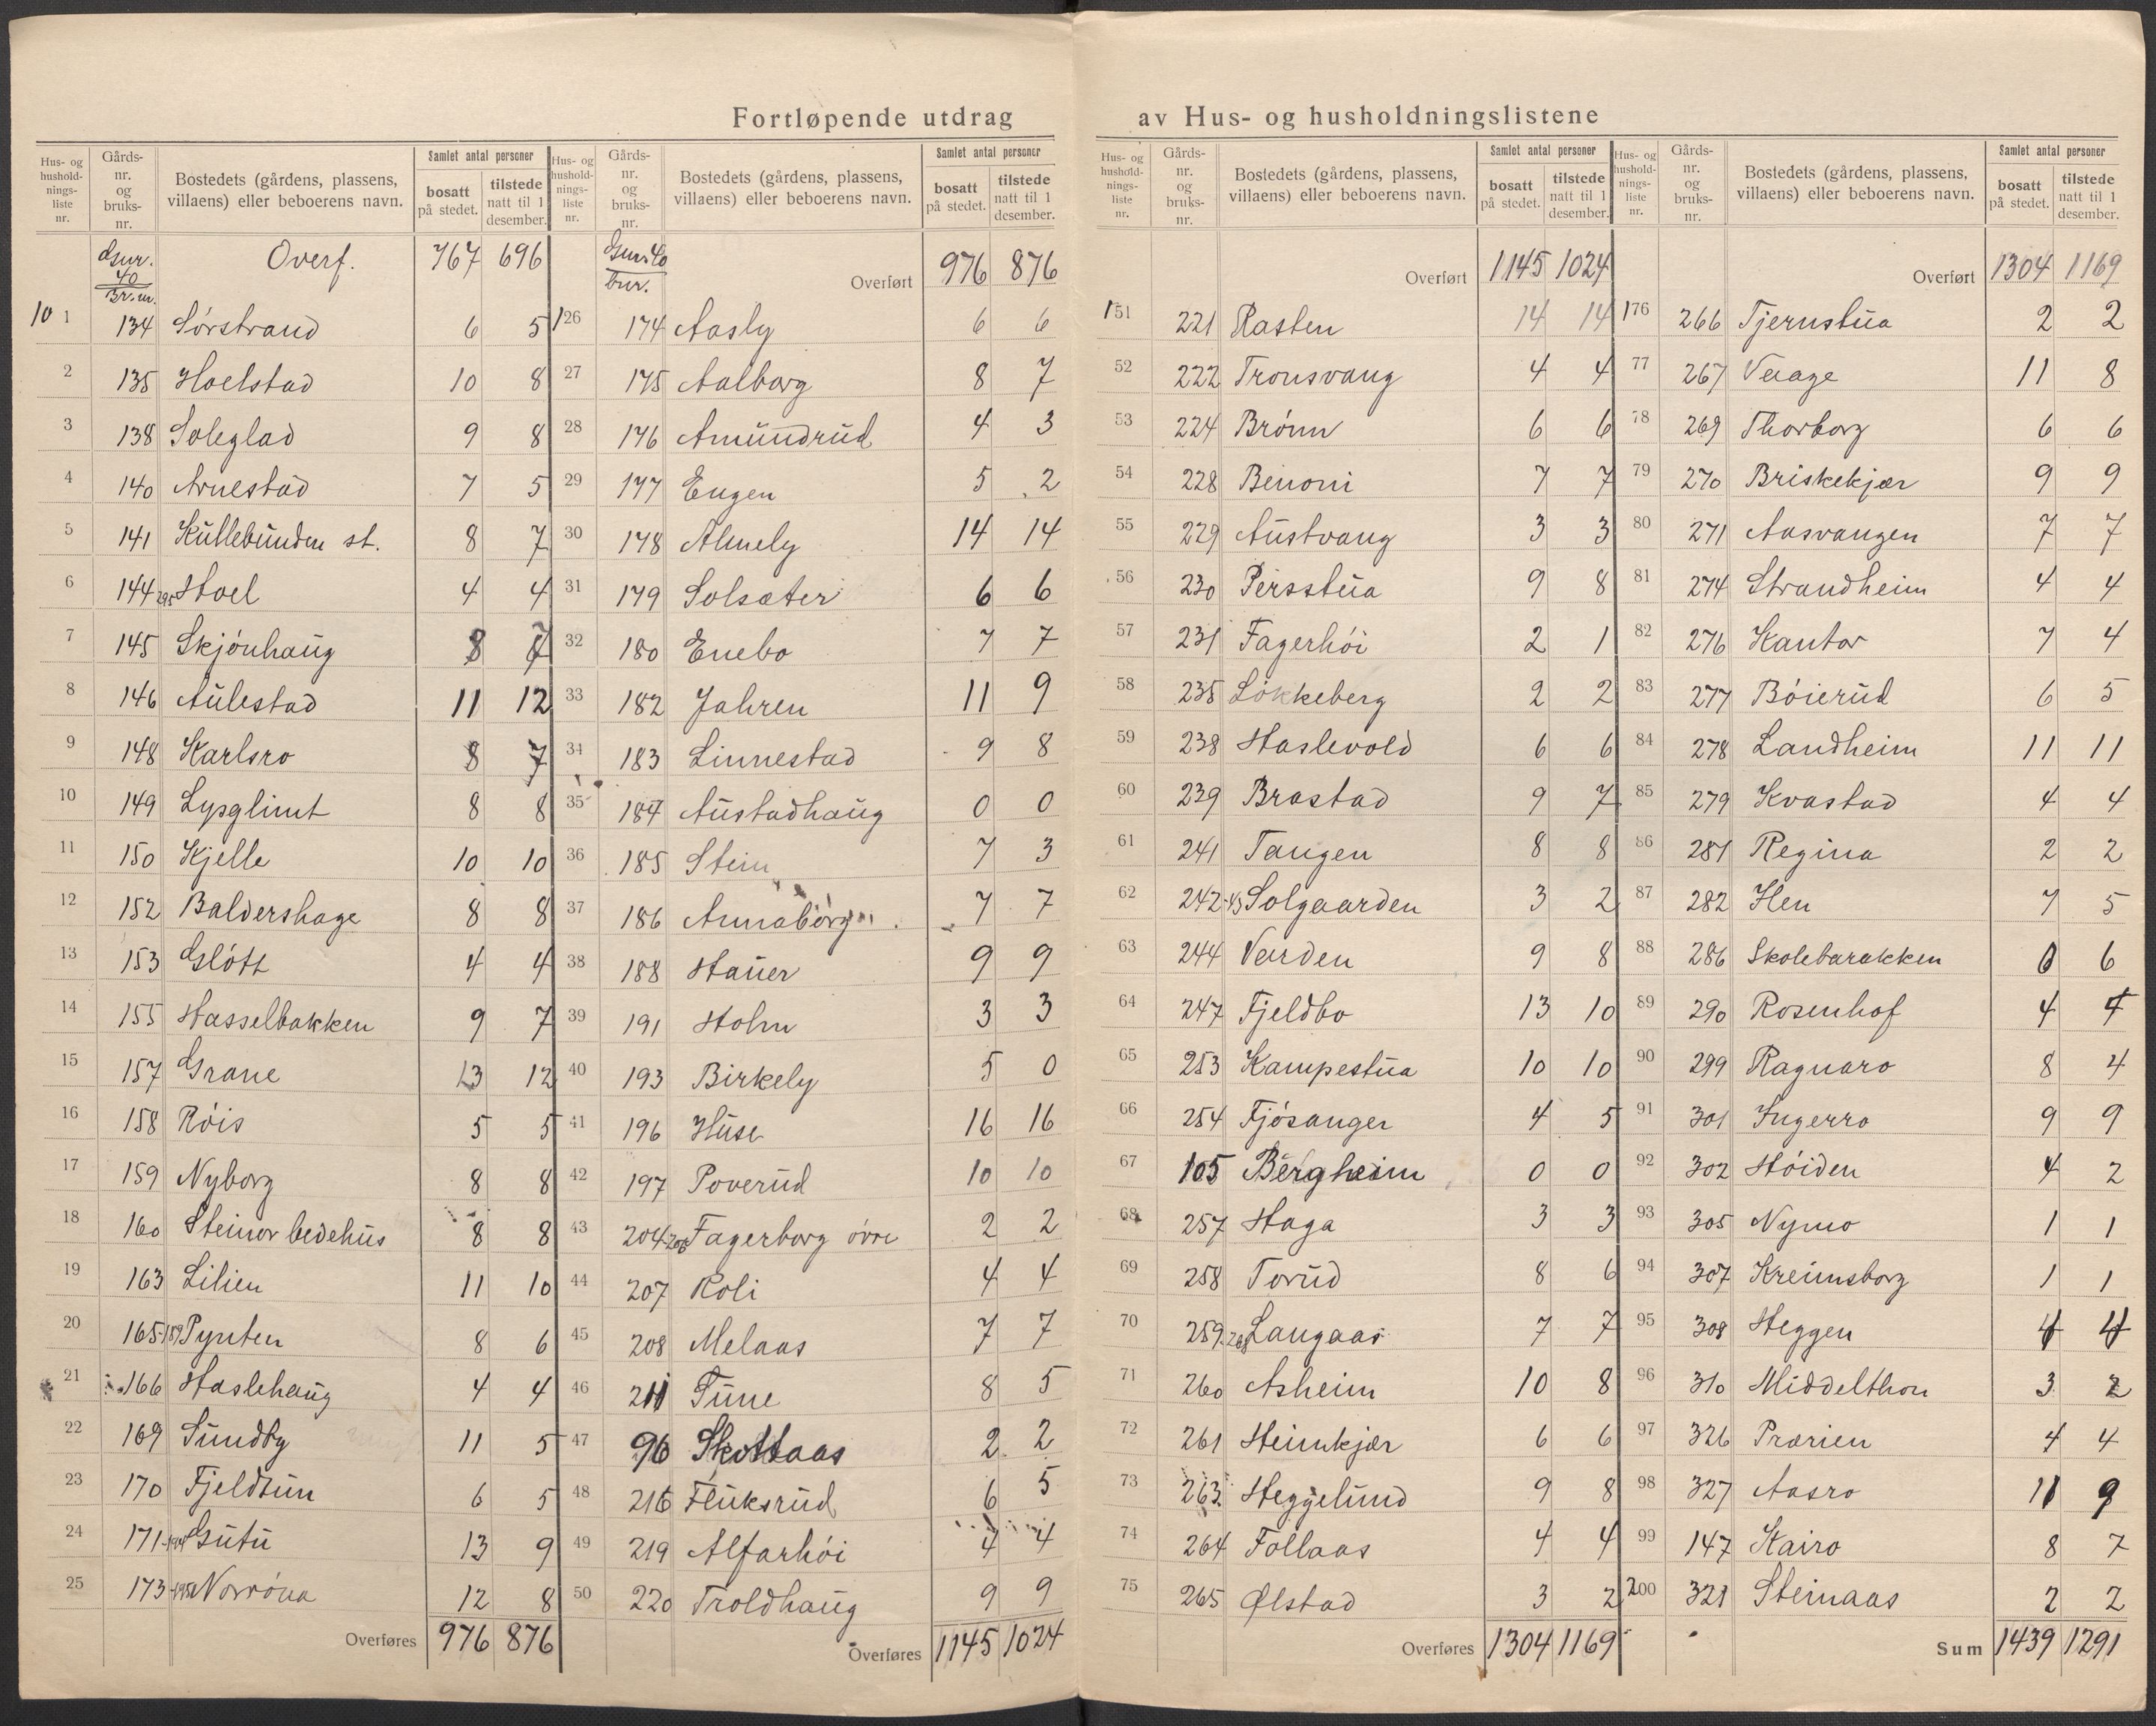 Fortløpende utdrag av Hus- og husholdningslistene
Hus- og hushold-nings-liste nr. | Gårds-nr. og bruks-nr. | Bostedets (gårdens, plassens, villaens) eller beboerens navn. | Samlet antal personer | bosatt på stedet. | tilstede natt til 1 desember.
Gnr. 40 Br.nr. Overf. 767 696
101 134 Sörstrand 6 5
2 135 Hoelstad 10 8
3 138 Soleglad 9 8
4 140 Arnestad 7 5
5 141 Kullebunden st. 8 7
6 144 295 Hoel 4 4
7 145 Skjönhaug 8 7
8 146 Aulestad 11 12
9 148 Karlsro 8 7
10 149 Lysglimt 8 8
11 150 Kjelle 10 10
12 152 Baldershage 8 8
13 153 Glött 4 4
14 155 Hasselbakken 9 7
15 157 Grane 13 12
16 158 Röis 5 5
17 159 Nyborg 8 8
18 160 Steinor bedehus 8 8
19 163 Lilien 11 10
20 165-189 Pynten 8 6
21 166 Haslehaug 4 4
22 169 Sundby 11 5
23 170 Fjeldtun 6 5
24 171 Gutu 13 9
25 173 Norröna 12 8
Overføres 976 876
Hus- og hushold-nings-liste nr. | Gårds-nr. og bruks-nr. | Bostedets (gårdens, plassens, villaens) eller beboerens navn. | Samlet antal personer | bosatt på stedet. | tilstede natt til 1 desember.
Gnr. 40 bnr. Overført 976 876
126 174 Aasly 6 6
27 175 Aalborg 8 7
28 176 Amundrud 4 3
29 177 Engen 5 2
30 178 Almely 14 14
31 179 Solsæter 6 6
32 180 Enebo 7 7
33 182 Jahren 11 9
34 183 Linnestad 9 8
35 184 Austadhaug 0 0
36 185 Stein 7 3
37 186 Annaborg 7 7
38 188 Hauer 9 9
39 191 Holm 3 3
40 193 Birkely 5 0
41 196 Huse 16 16
42 197 Poverud 10 10
43 204-206 Fagerborg övre 2 2
44 207 Roli 4 4
45 208 Melaas 7 7
46 211 Tune 8 5
47 96 Skottaas 2 2
48 216 Fluksrud 6 5
49 219 Alfarhöi 4 4
50 220 Troldhaug 9 9
Overføres 1145 1024
Hus- og hushold-nings-liste nr. | Gårds-nr. og bruks-nr. | Bostedets (gårdens, plassens, villaens) eller beboerens navn. | Samlet antal personer | bosatt på stedet. | tilstede natt til 1 desember.
Overført 1145 1024
151 221 Rasten 14 14
52 222 Tronsvang 4 4
53 224 Brönn 6 6
54 228 Benoni 7 7
55 229 Austvang 3 3
56 230 Persstua 9 8
57 231 Fagerhöi 2 1
58 235 Lökkeberg 2 2
59 238 Haslevold 6 6
60 239 Brastad 9 7
61 241 Tangen 8 8
62 242-43 Solgaarden 3 2
63 244 Varden 9 8
64 247 Fjeldbo 13 10
65 253 Kampestua 10 10
66 254 Fjösanger 4 5
67 105 Bergheim 0 0
68 257 Haga 3 3
69 258 Torud 8 6
70 259-268 Langaas 7 7
71 260 Asheim 10 8
72 261 Heimkjær 6 6
73 263 Heggelund 9 8
74 264 Follaas 4 4
75 265 Ølstad 3 2
Overføres 1304 1169
Hus- og hushold-nings-liste nr. | Gårds-nr. og bruks-nr. | Bostedets (gårdens, plassens, villaens) eller beboerens navn. | Samlet antal personer | bosatt på stedet. | tilstede natt til 1 desember.
Overført 1304 1169
176 266 Tjernstua 2 2
77 267 Vaage 11 8
78 269 Thorborg 6 6
79 270 Briskekjær 9 9
80 271 Aasvangen 7 7
81 274 Strandheim 4 4
82 276 Kantor 7 4
83 277 Böierud 6 5
84 278 Landheim 11 11
85 279 Kvastad 4 4
86 281 Regina 2 2
87 282 Hen 7 5
88 286 Skolebarakken 6 6
89 290 Rosenhof 4 4
90 299 Ragnaro 8 4
91 301 Ingerro 9 9
92 302 Höiden 4 2
93 305 Nymo 1 1
94 307 Kreimsborg 1 1
95 308 Heggen 4 4
96 310 Middelthon 3 2
97 326 Prærien 4 4
98 327 Aasro 11 9
99 147 Kairo 8 7
200 321 Steinaas 2 2
Sum 1439 1291